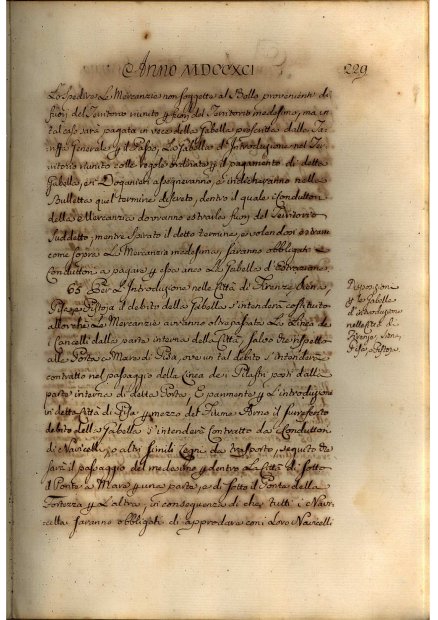 Anno MDCCXCI
229
Lo spedire Le Mercanzie non soggette al Bollo provenienti di
fuori del Territorio riunito p fuori del Territorio medesimo, ma in
tal caso sarà pagata in vece della Gabella prescritta dalla Ta-
riffa Generale p il Passo, La Gabella d'Introduzione nel Ter-
ritorio riunito colle regole ordinate p il pagamento di detta
Gabella, ed i Doganieri assegneranno, e indicheranno nella
Bulletta quel termine discreto, dentro il quale i Conduttori
della Mercanzia dovranno estrarla fuori del Territorio
suddetto, mentre spirato il detto termine, e volendosi estrarre
come sopra La Mercanzia medesima, saranno obbligati i
Conduttori a pagare p essa anco La Gabella d'estrazione.
65. Per L'Introduzione nelle Città di Firenze, Siena,
Pisa, e Pistoja il debito della Gabella s'intenderà costituito
allorchè Le Mercanzie avranno oltrepassata La Linea de
Cancelli dalla parte interna delle Città, salvo che rispetto
alla Porta a Mare di Pisa, ove un tal debito s'intenderà
contratto nel passaggio della Linea dei Pilastri posti dalla
parte interna di detta Porta. E parimente p L'introduzione
in detta Città di Pisa p mezzo del Fiume Arno il surriferito
debito della Gabella s'intenderà Contratto da Conduttori
di Navicelli, o altri simili Legni da trasporto, seguito che
sarà il passaggio del medesimo p dentro La Città di sotto
il Ponte a Mare p una parte, e di sotto il Ponte della
Fortezza p L'altra, in conseguenza di che, tutti i Navi-
cellai saranno obbligati di approdare con i Loro Navicelli
Disposizioni
p la Gabella
d'introduzione
nelle Città di
Firenze, Siena,
Pisa, e Pistoja